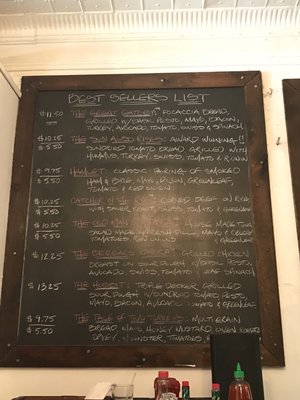 BEST SELLERS LIST
$11.50 THE GREAT GATSBY: FOCACCIA BREAD,
GRILLED W/BASIL PESTO, MAYO, BACON,
TURKEY, AVOCADO, TOMATO, SWISS & SPINACH
$10.25 THE SUN ALSO RISES: AWARD WINNING!!
$5.50 SUNDRIED TOMATO BREAD GRILLED WITH
HUMMUS, TURKEY, SWISS, TOMATO & R. ONION
$9.75 HAMLET: CLASSIC PAIRING OF SMOKED
$5.50 HAM & BRIE, MAYO, DIJON, GREENLEAF,
TOMATO & RED ONION
$10.25 CATCHER IN THE RYE: CORNED BEEF ON RYE
$5.50 SWISS, TOMATO & GREENLEAF
$10.25 THE OLD MAN HOUSE MADE TUNA
$5.50 SALAD MADE W/FRESH DILL, MAYO & CELERY
TOMATOES, RED ONIONS
$12.25 GRILLED CHICKEN
BREAST ON SOUR DOUGH W/BASIL PESTO,
AVOCADO, SWISS, TOMATO & LEAF SPINACH
$13.25 THE HOBBIT: TRIPLE DECKER GRILLED
SOUR DOUGH W/SUNDRIED TOMATO PESTO,
MAYO, BACON, AVOCADO, TOMATO & GREENLEAF
$9.75 THE TALE OF TWO TURKEYS: MULTI GRAIN
$5.50 BREAD, MAYO, HONEY MUSTARD, OVEN ROASTED
TURKEY, MUENSTER, TOMATOES, &